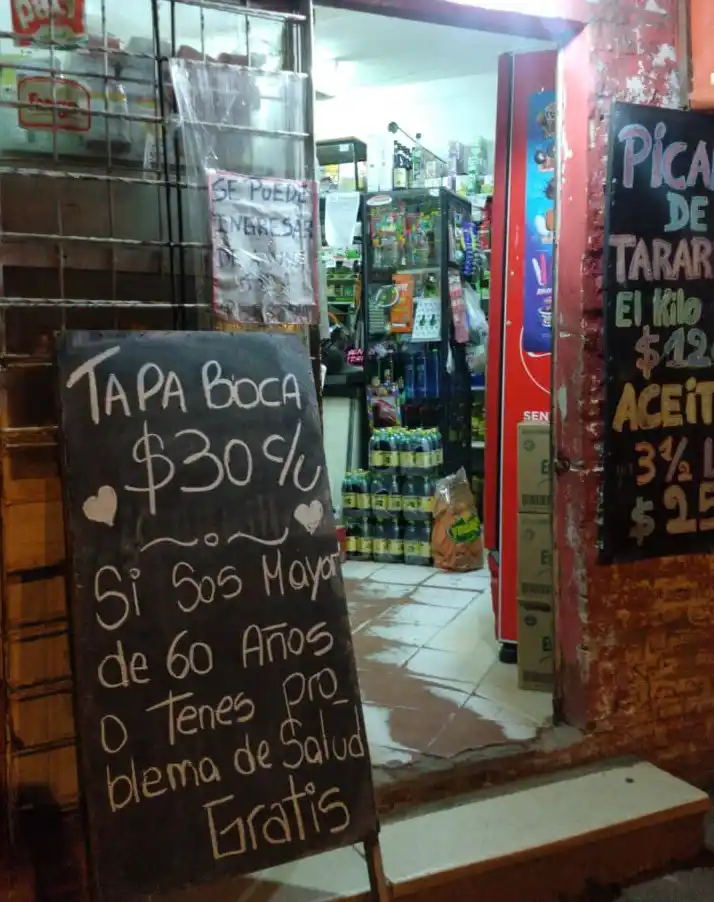 SE PUEDE
INGRESAR
DE
TAPA BOCA
$30 c/u
Si Sos Mayor
de 60 Años
O Tenes pro
blema de Salud
Gratis
PICA
DE
TARAR
El Kilo
$12
ACEIT
3 1/2 L
$25
SEN